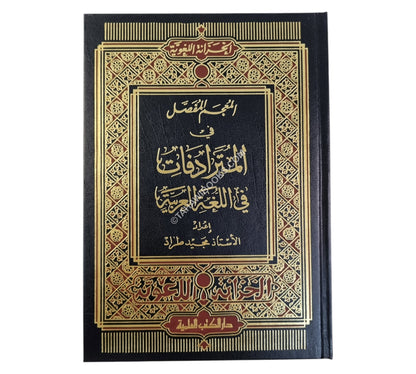 الخزانة اللغوية
المعجم المفصل
في
المترادفات
في اللغة العربية
إعداد
الأستاذ محمد طراد
الخزانة اللغوية
دار الكتب العلمية